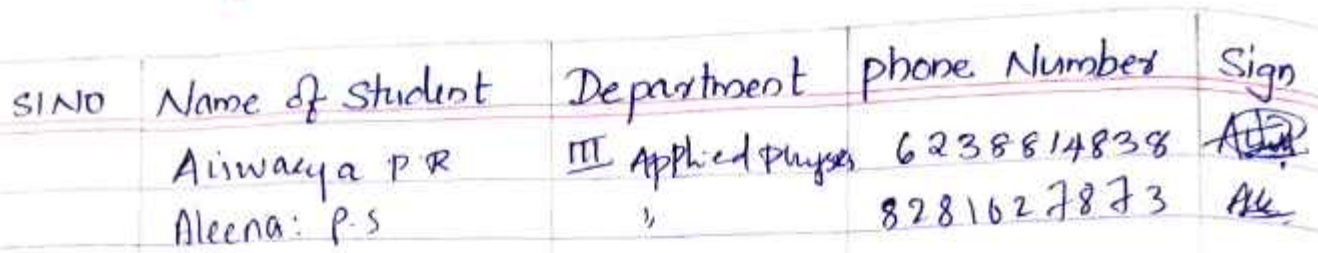 SINO Name of Student Department phone Number Sign
Aiswarya P R III Applied physics 6238814838
Aleena: P.S ,, 8281627873 Ale